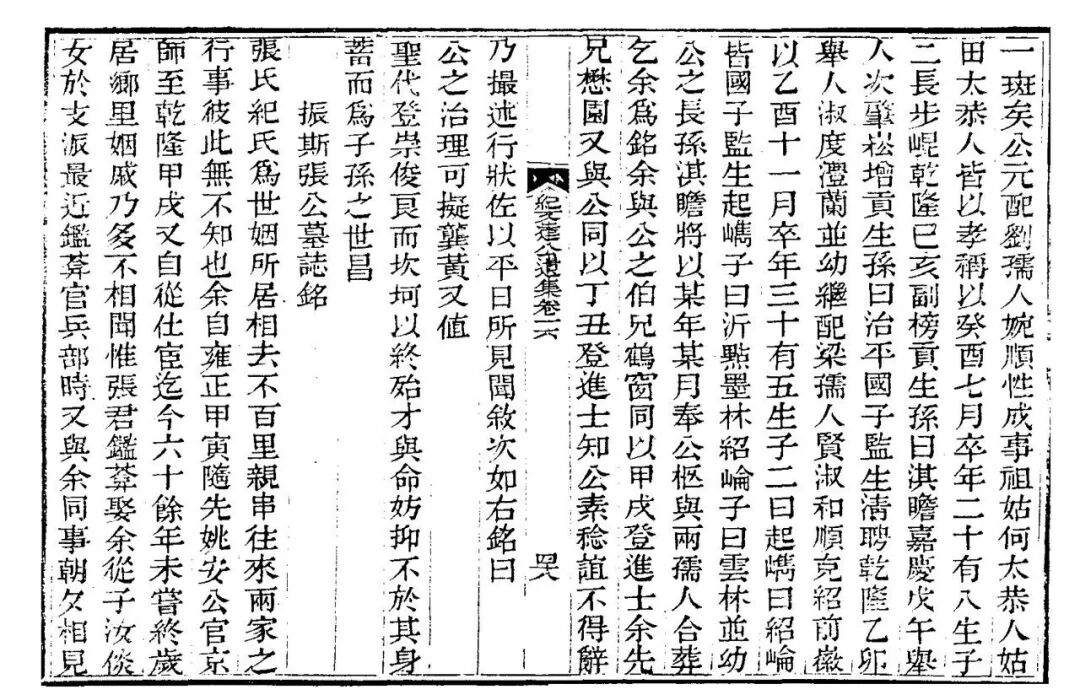 一斑矣公元配劉孺人婉順性成事祖姑何太恭人姑
田太恭人皆以孝稱以癸酉七月卒年二十有八生子
二長步崐乾隆己亥副榜貢生孫曰淇瞻嘉慶戊午舉
人次肇崧增貢生孫曰治平國子監生清聘乾隆乙卯
舉人淑度澧蘭並幼繼配梁孺人賢淑和順克紹前徽
以乙酉十一月卒年三十有五生子二曰起嶲曰紹崘
皆國子監生起嶲子曰沂點墨林紹崘子曰雲林並幼
公之長孫淇瞻將以某年某月奉公柩與兩孺人合葬
乞余爲銘余與公之伯兄鶴窗同以甲戌登進士余先
兄懋園又與公同以丁丑登進士知公素稔誼不得辭
紀文達公遺集卷十六
乃撮述行狀佐以平日所見聞敘次如右銘曰
公之治理可擬龔黃又值
聖代登崇俊良而坎坷以終殆才與命妨抑不於其身
蓄而爲子孫之世昌
振斯張公墓誌銘
張氏紀氏爲世姻所居相去不百里親串往來兩家之
行事彼此無不知也余自雍正甲寅隨先姚安公官京
師至乾隆甲戌又自從仕宦迄今六十餘年未嘗終歲
居鄉里姻戚乃多不相聞惟張君鑑菴娶余從子汝倓
女於支派最近鑑菴官兵部時又與余同事朝夕相見